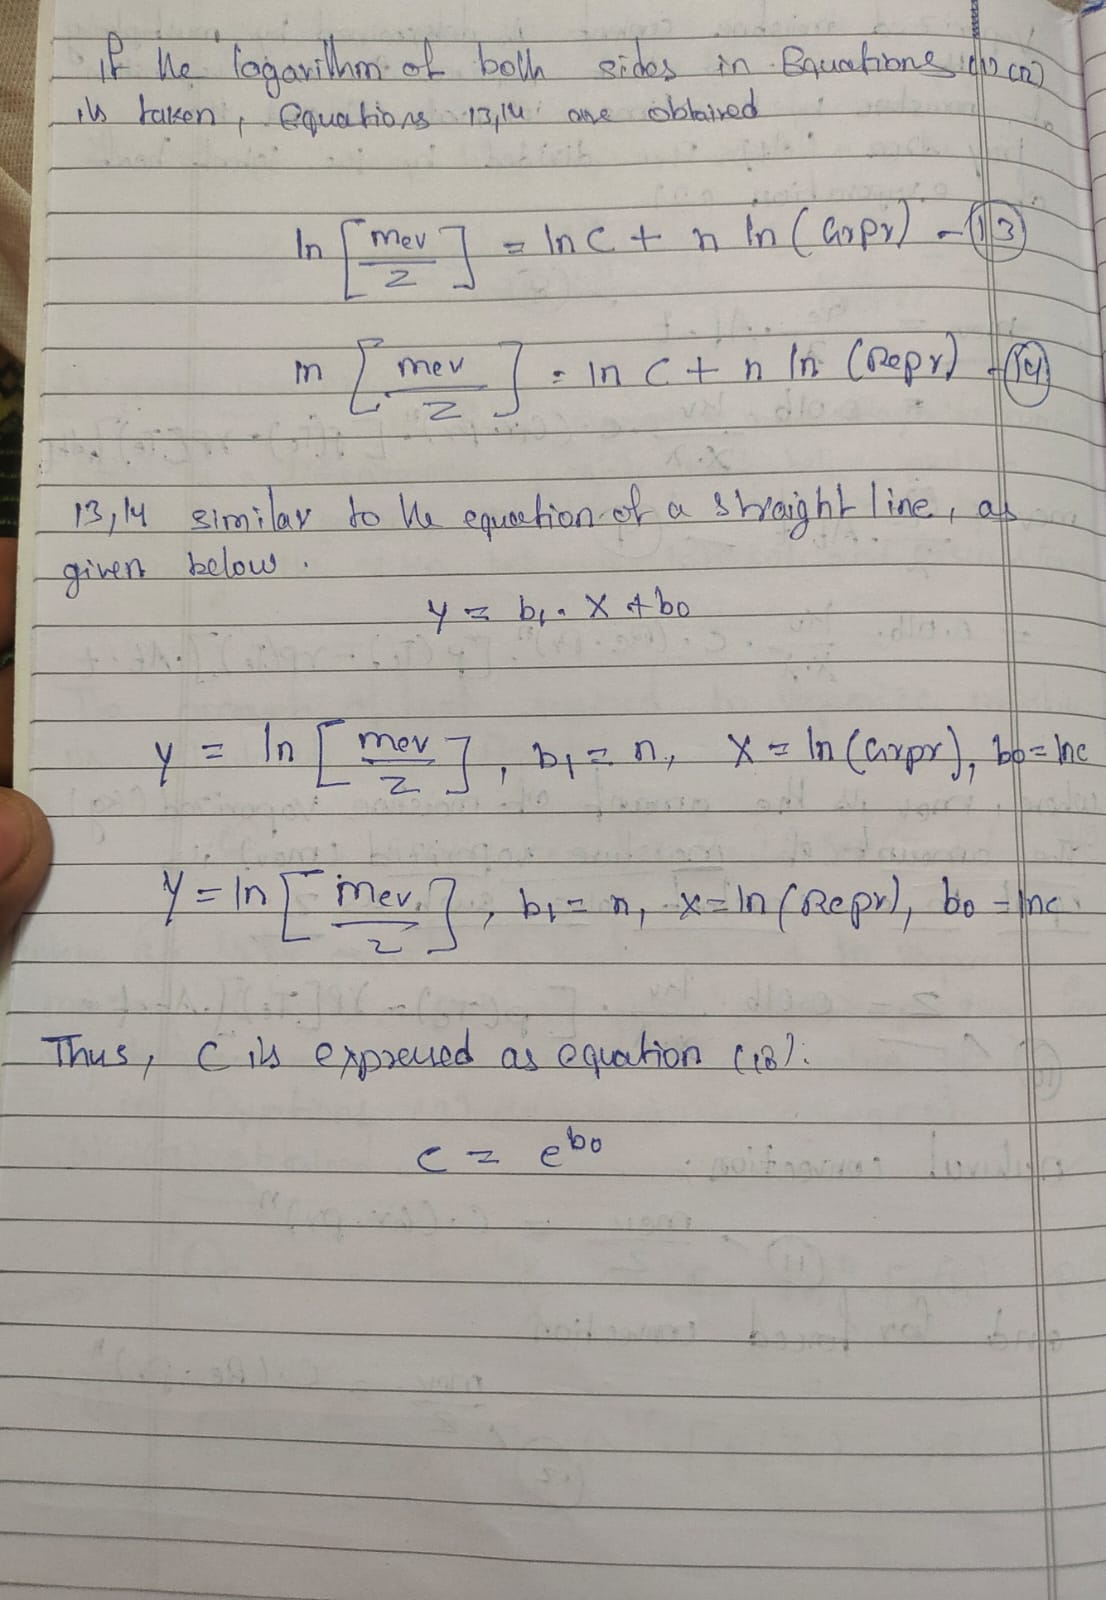 if the logarithm of both sides in Equations (11) (12)
is taken, Equations 13,14 are obtained
ln [mev/Z] = ln C + n ln (GrPr) - (13)
ln [mev/Z] = ln C + n ln (RePr) - (14)
13,14 similar to the equation of a straight line, as
given below.
y = b1 . X + b0
y = ln [mev/Z], b1 = n, X = ln (GrPr), b0 = lnc
y = ln [mev/Z], b1 = n, x = ln (RePr), b0 = lnc
Thus, C is expressed as equation (18).
c = e^b0